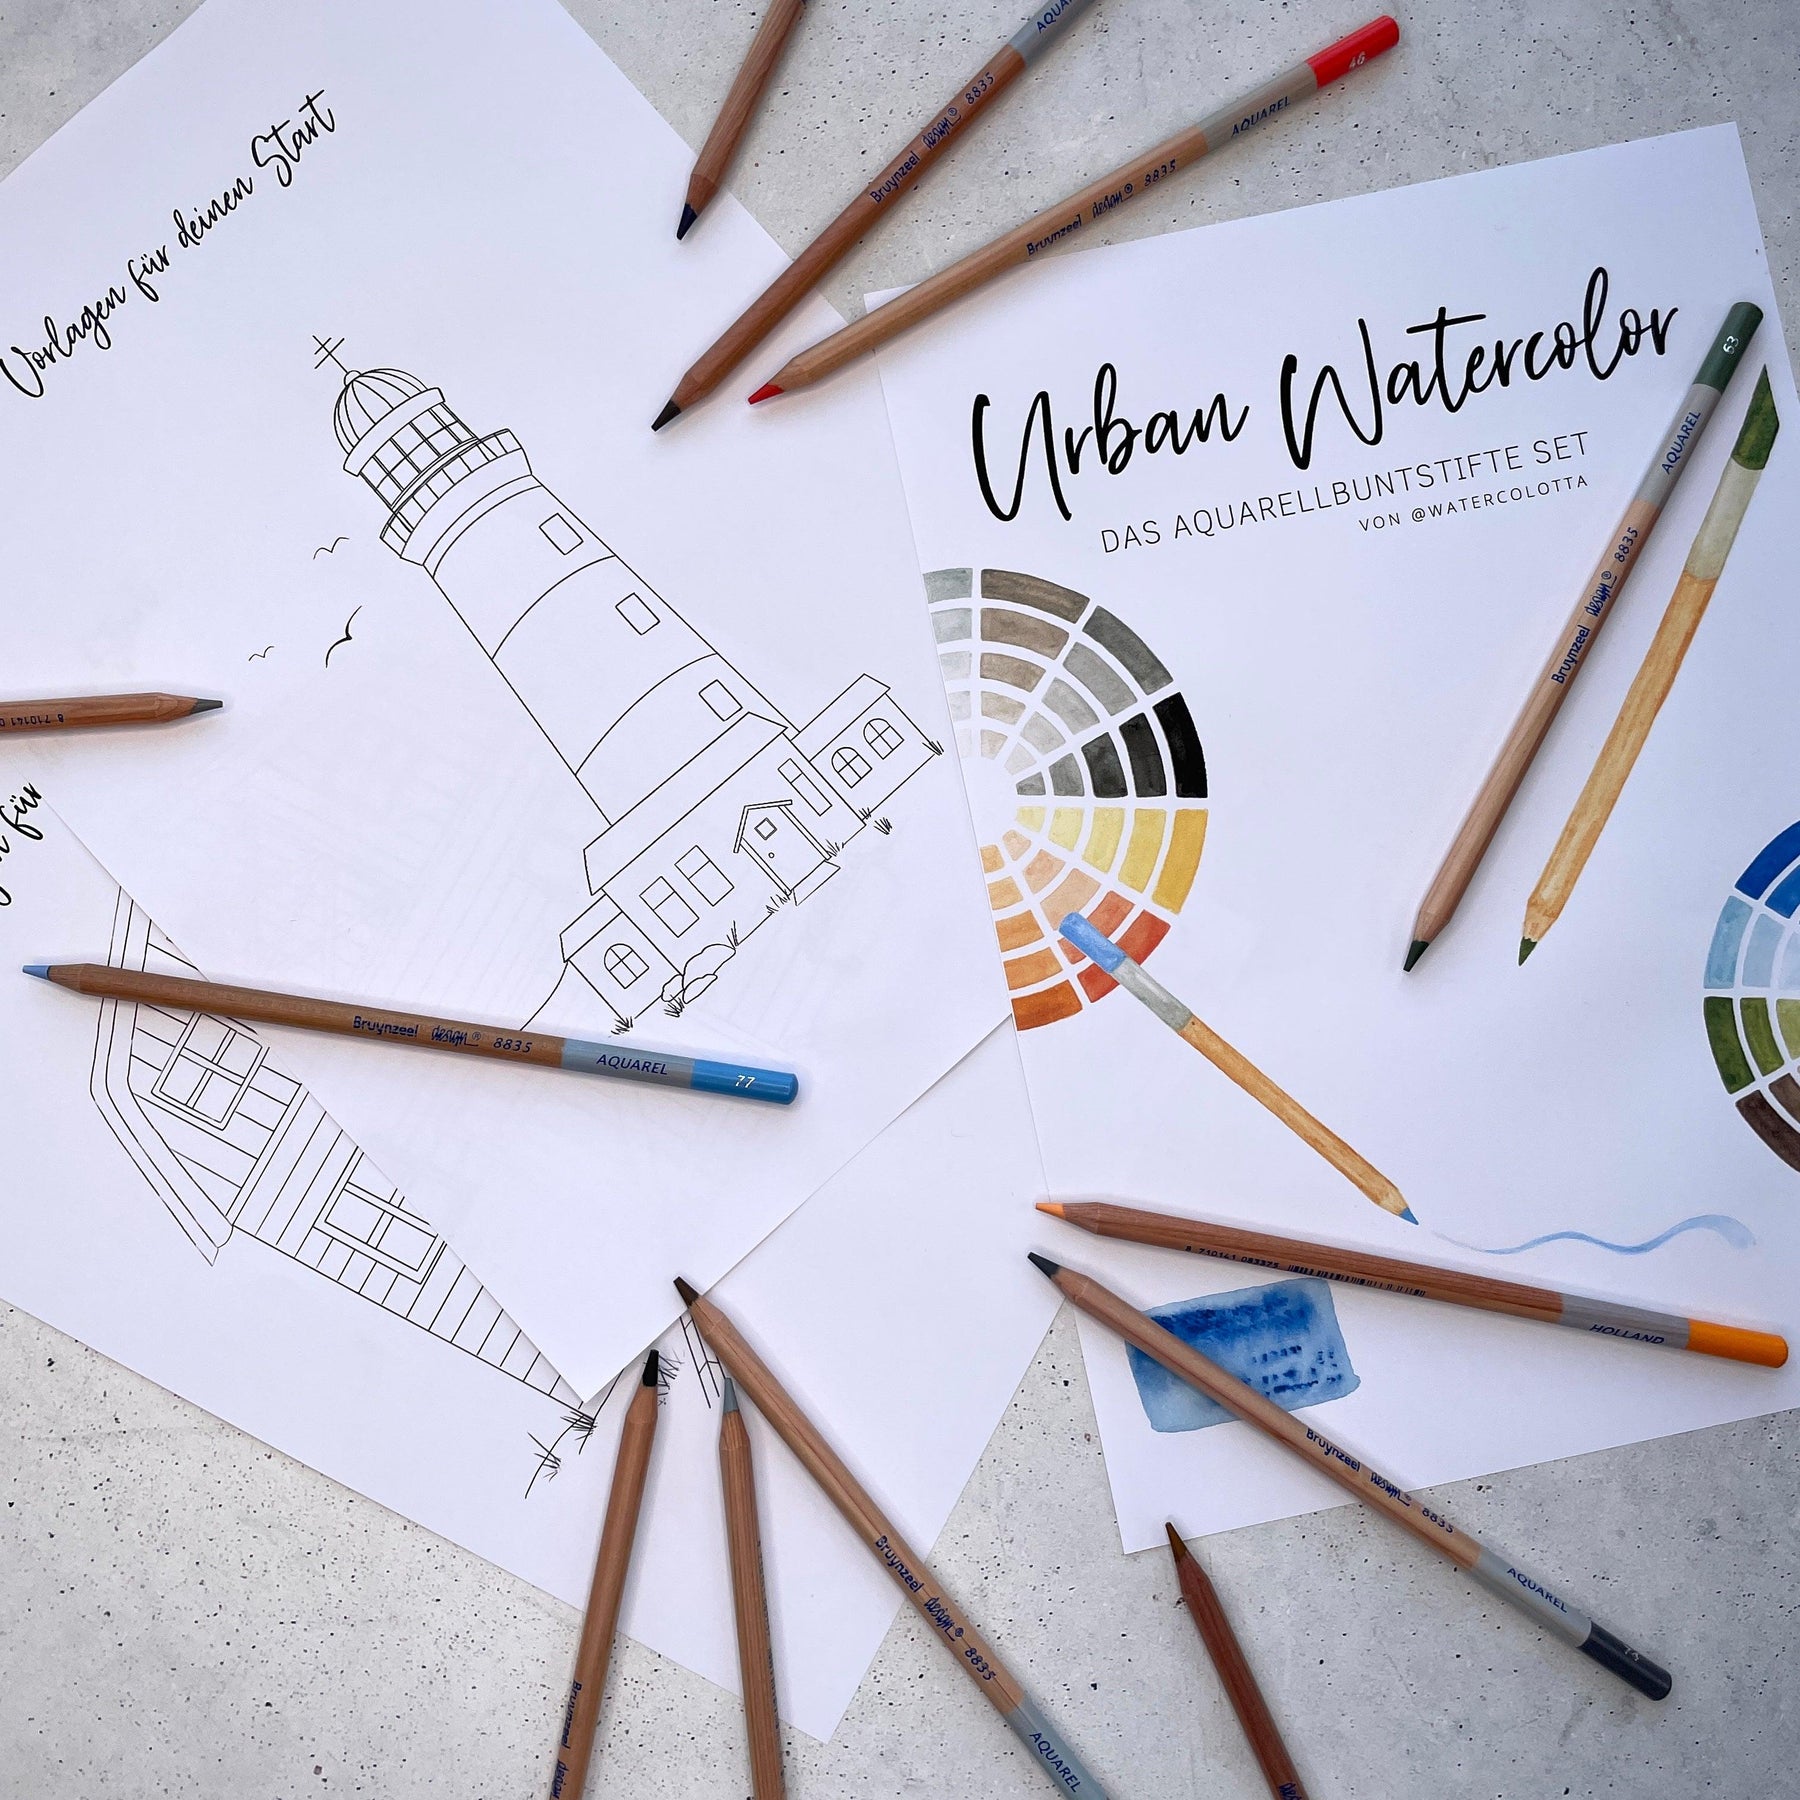 Vorlagen für deinen Start
für
Urban Watercolor
DAS AQUARELLBUNTSTIFTE SET
VON @WATERCOLOTTA
Bruynzeel design® 8835
Bruynzeel design® 8835 AQUAREL 46
Bruynzeel design® 8835 AQUAREL 63
8 710141
Bruynzeel design® 8835 AQUAREL 77
8 710141 083375 HOLLAND
Bruynzeel design® 8835 AQUAREL
Bruynzeel design® 8835 AQUAREL
Bruynzeel